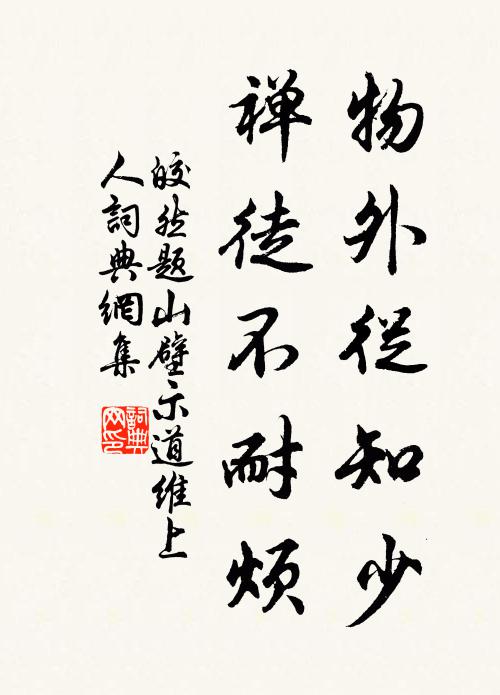 物外從知少
禅徒不耐烦
皎然题山壁示道維上
人詞典網集
詞典
网印